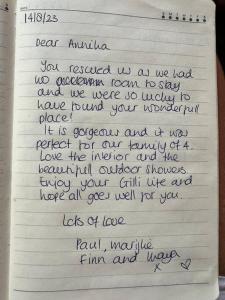 14/8/23
Dear Annika
You rescued us as we had
no room to stay
and we were so lucky to
have found your wonderfull
place!
It is gorgeous and it was
perfect for our family of 4.
Love the interior and the
beautifull outdoor showers.
Enjoy your Gilli life and
hope all goes well for you.
Lots of love
Paul, Marijke
Finn and Maya
x